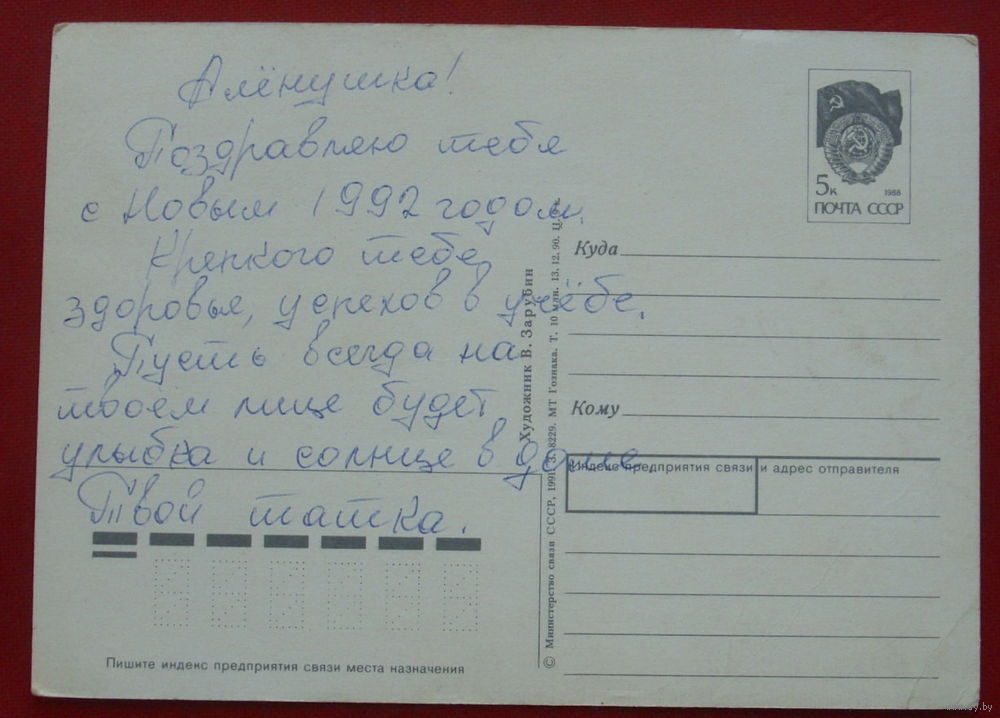 Алёнушка!
Поздравляю тебя
с Новым 1992 годом,
Крепкого тебе
здоровья, успехов в учёбе.
Пусть всегда на
твоем лице будет
улыбка и солнце в доме.
Твой татка.
5к
1988
ПОЧТА СССР
Куда
Кому
Индекс предприятия связи и адрес отправителя
Художник В. Зарубин
© Министерство связи СССР, 1991. З. 8229. МТ Гознака. Т. 10 млн. 13.12.90. Ц.
Пишите индекс предприятия связи места назначения